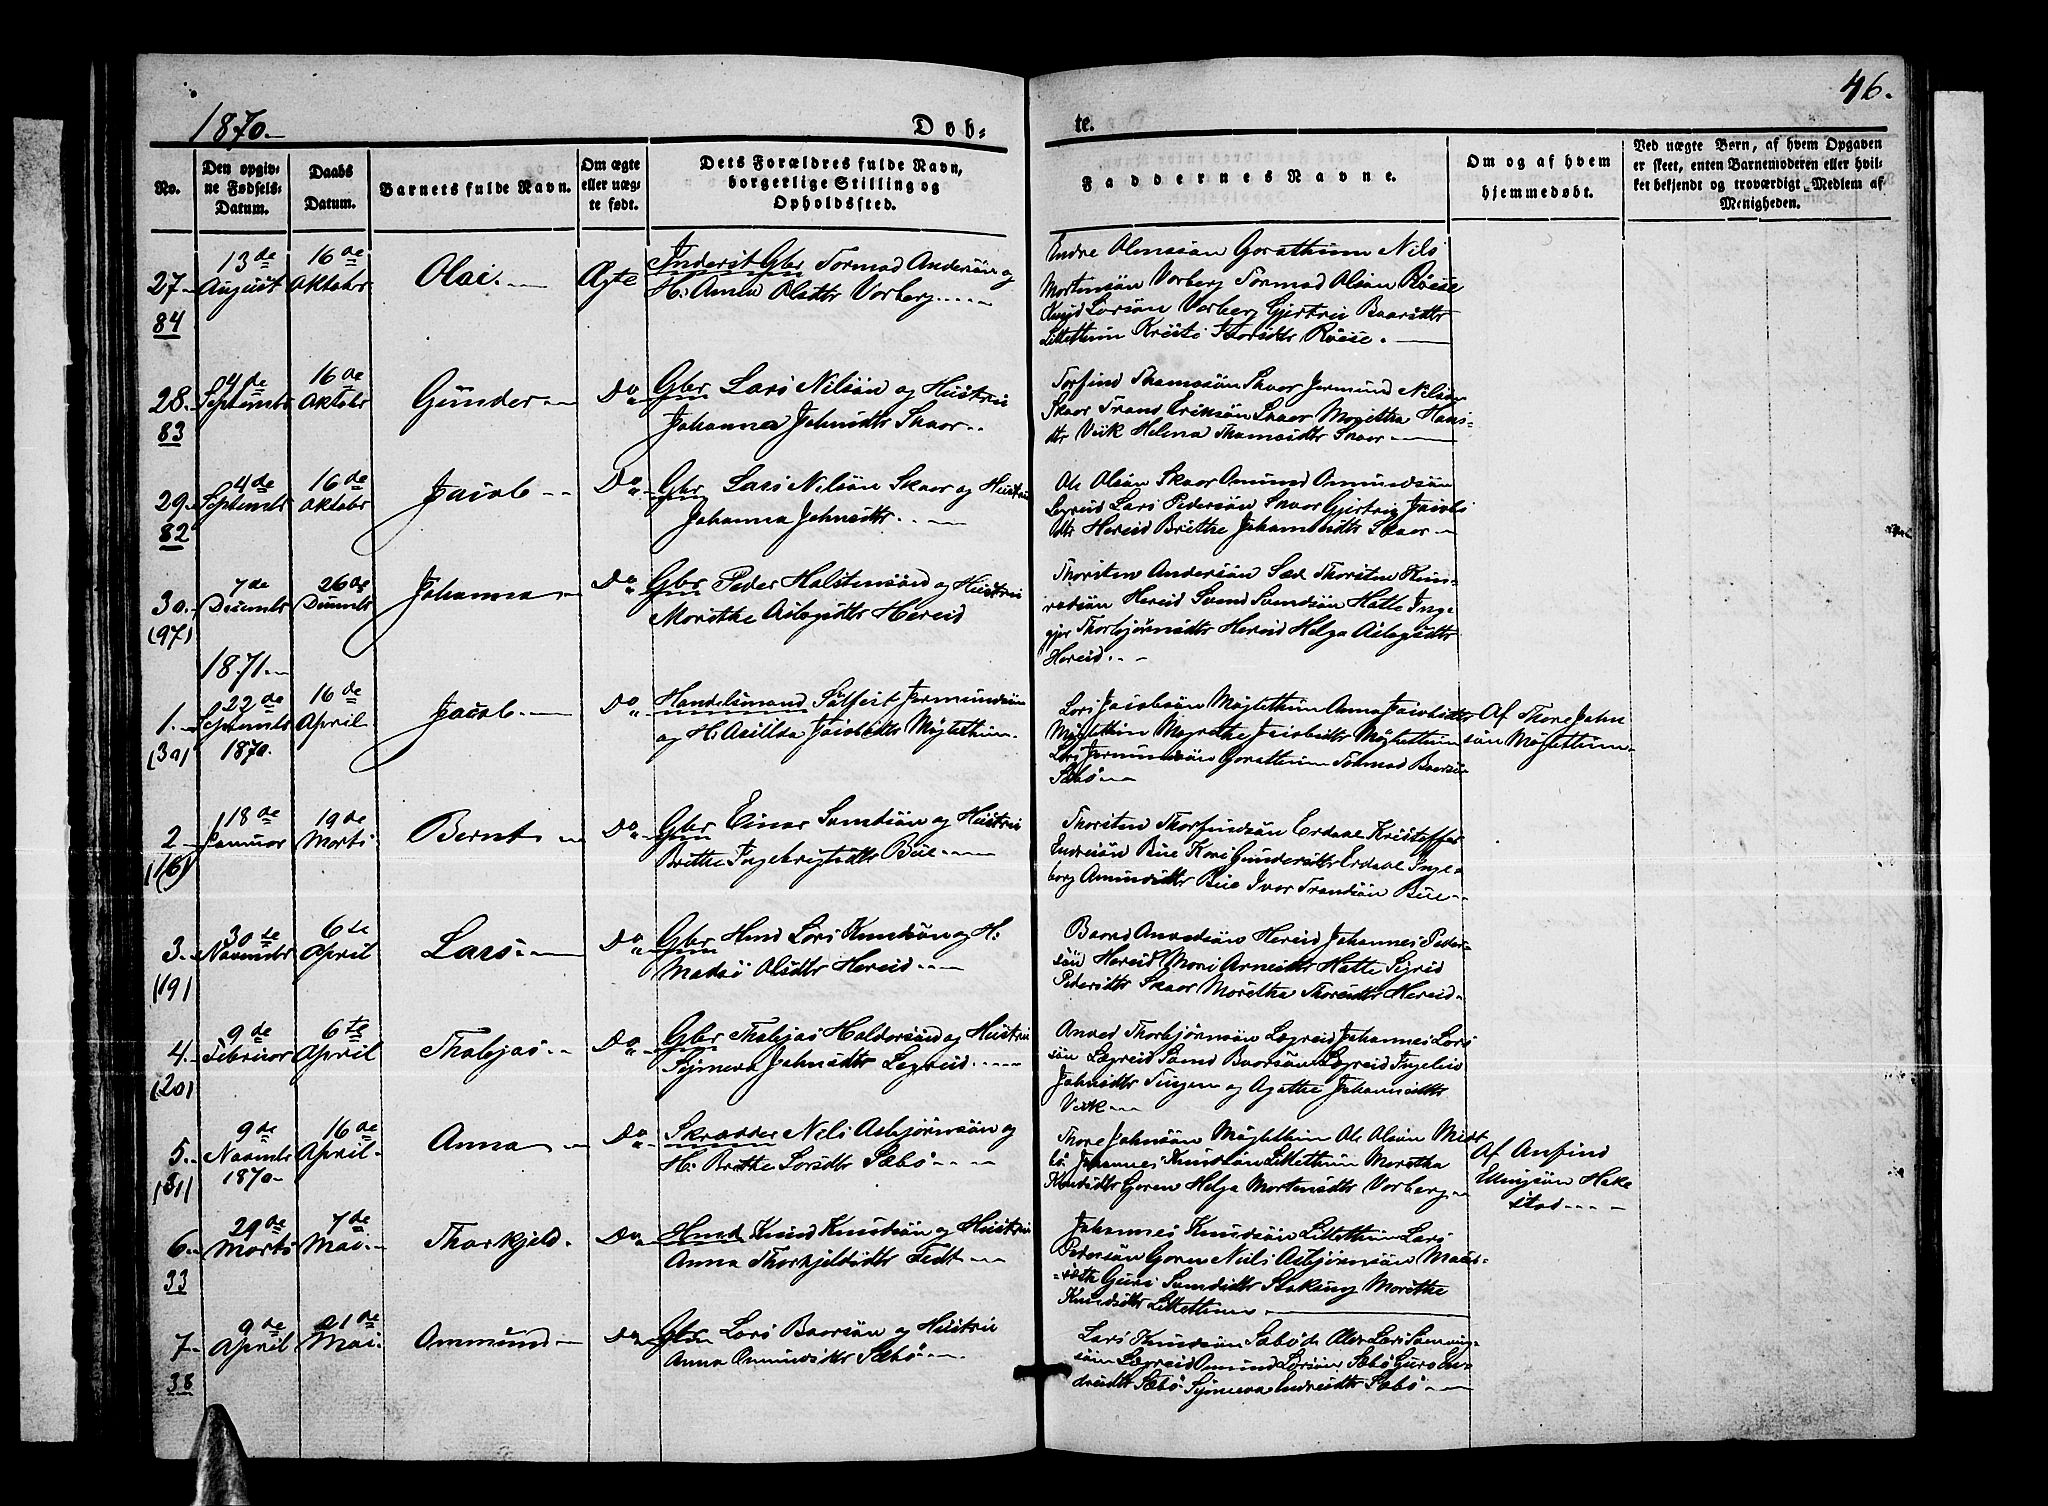 46.
1870.
Døb-
te.
No.
Den opgiv-
ne Fødsels-
Datum.
Daabs
Datum.
Barnets fulde Navn.
Om ægte
eller uæg-
te født.
Dets Forældres fulde Navn,
borgerlige Stilling og
Opholdssted.
Faddernes Navne.
Om og af hvem
hjemmedøbt.
Ved uægte Børn, af hvem Opgaven
er skeet, enten Barnemoderen eller hvil-
ket bekjendt og troværdigt Medlem af
Menigheden.
27
84
13de
August
16de
Oktobr
Olai.
Ægte
Inderst Gbr Tormod Andersön og
H: Anna Olsdtr Vorberg
Endre Olensön Gorathun Nils
Mortensön Vorberg Tormod Olsön Röise
Larsön Vorberg Gjertrü Baarsdtr
Littlethun Kristi Röise.
28
83
4de
Septembr
16de
Oktobr
Gunder
Do
Gbr Lars Nilsön og Hustrü
Johanna Johnsdtr Skaar
Torfind Thomasön Skaar Jermund Nilsön
Skaar Trond Eriksön Skaar Magretha Hans-
dtr Veik Helena Thomasdtr Skaar
29
82
4de
Septembr
16de
Oktobr
Jacob
Do
Gbr Lars Nilsön Skaar og Hustrü
Johanna Johnsdtr.
Ole Olsön Skaar Amund Ommundsön
Legreid Lars Pedersön Skaar Gjertrü Jacobs
dtr Hereid Brithe Johannesdtr Skaar
30
(97)
7de
Decembr
26de
Decembr
Johanna
Do
Gbr Peder Halstensön og Hustrü
Morithe Aslagsdtr Hereid
Thorsten Andersön Sæd Thorsten Kon-
radsön Hereid Svend Svendsön Hatle Inge
gjer Thorbjörnsdtr Hereid Helga Aslagsdtr
Hereid.
1871.
1
(30)
22de
Septembr
1870.
16de
April
Jacob
Do
Handelsmand Sjöfert Jermundsön
og H: Asillda Jacobsdtr Mögletthun.
Lars Jacobsön Mögletthun Anna Jacobsdtr
Mögletthun Magrethe Jacobsdtr Mögletthun
Lars Jermundsön Gorathun Tormod Baarsön
Sæbö
Af Thore John
sön Mögletthun
2
(18)
18de
Januar
19de
Marts
Bernt
Do
Gbr Einar Svendsön og Hustrü
Brithe Ingebrigtsdtr Büe
Thorsten Thorfindsön Erdaal Kristoffer
Endresön Büe Kari Gundersdtr Erdaal Inge
borg Amundsdtr Büe Ivar Trondsön Büe
3
(19)
30te
Novembr
6te
April
Lars
Do
Gbr Hmd Lars Knudsön og H:
Madsö Olsdtr Hereid
Baard Anvedsön Hereid Johannes Peder-
sön Hereid Mari Arnesdtr Hatle Sigrid
Pedersdtr Skaar Moretha Thoresdtr Hereid
4
(20)
9de
Februar
6te
April
Tholejas
Do
Gbr Tholejas Haldorsön og Hustrü
Synneva Johnsdtr Legreid
Anved Thorbjörnsön Legreid Johannes Lars
sön Legreid Svend Baarsön Legreid Ingeleiv
Johnsdtr Tingen og Agathe Johannesdtr
Veik
5
(31)
9de
Novembr
1870
16de
April
Anna
Do
Skrædder Nils Asbjörnsön og
H: Brithe Larsdtr Sæbö
Thore Johnsön Mögletthun Ole Olsön Midt
bö Johannes Knudsön Littlethun Moretha
Knudsdtr Garen Helga Mortensdtr Vorberg
Af Anfind
Ellingsön Hake
stad
6
33
29de
Marts
7de
Mai
Thorkjeld.
Do
Hmd Knud Knudsön og Hustrü
Anna Thorkjeldsdtr Tedt
Johannes Knudsön Littlethun Lars
Pedersön Garen Nils Asbjörnsön Maur-
sæth Guri Svendsdtr Morithe
Knudsdtr Littlethun
7
38
9de
April
21de
Mai
Ommund
Do
Gbr Lars Baarsön og Hustrü
Anna Omundsdtr Sæbö
Lars Knudsön Sæbö de Lars
sön Legreid Omund Larsön Sæbö Guro En-
dresdtr Sæbö Synneva Endresdtr Sæbö